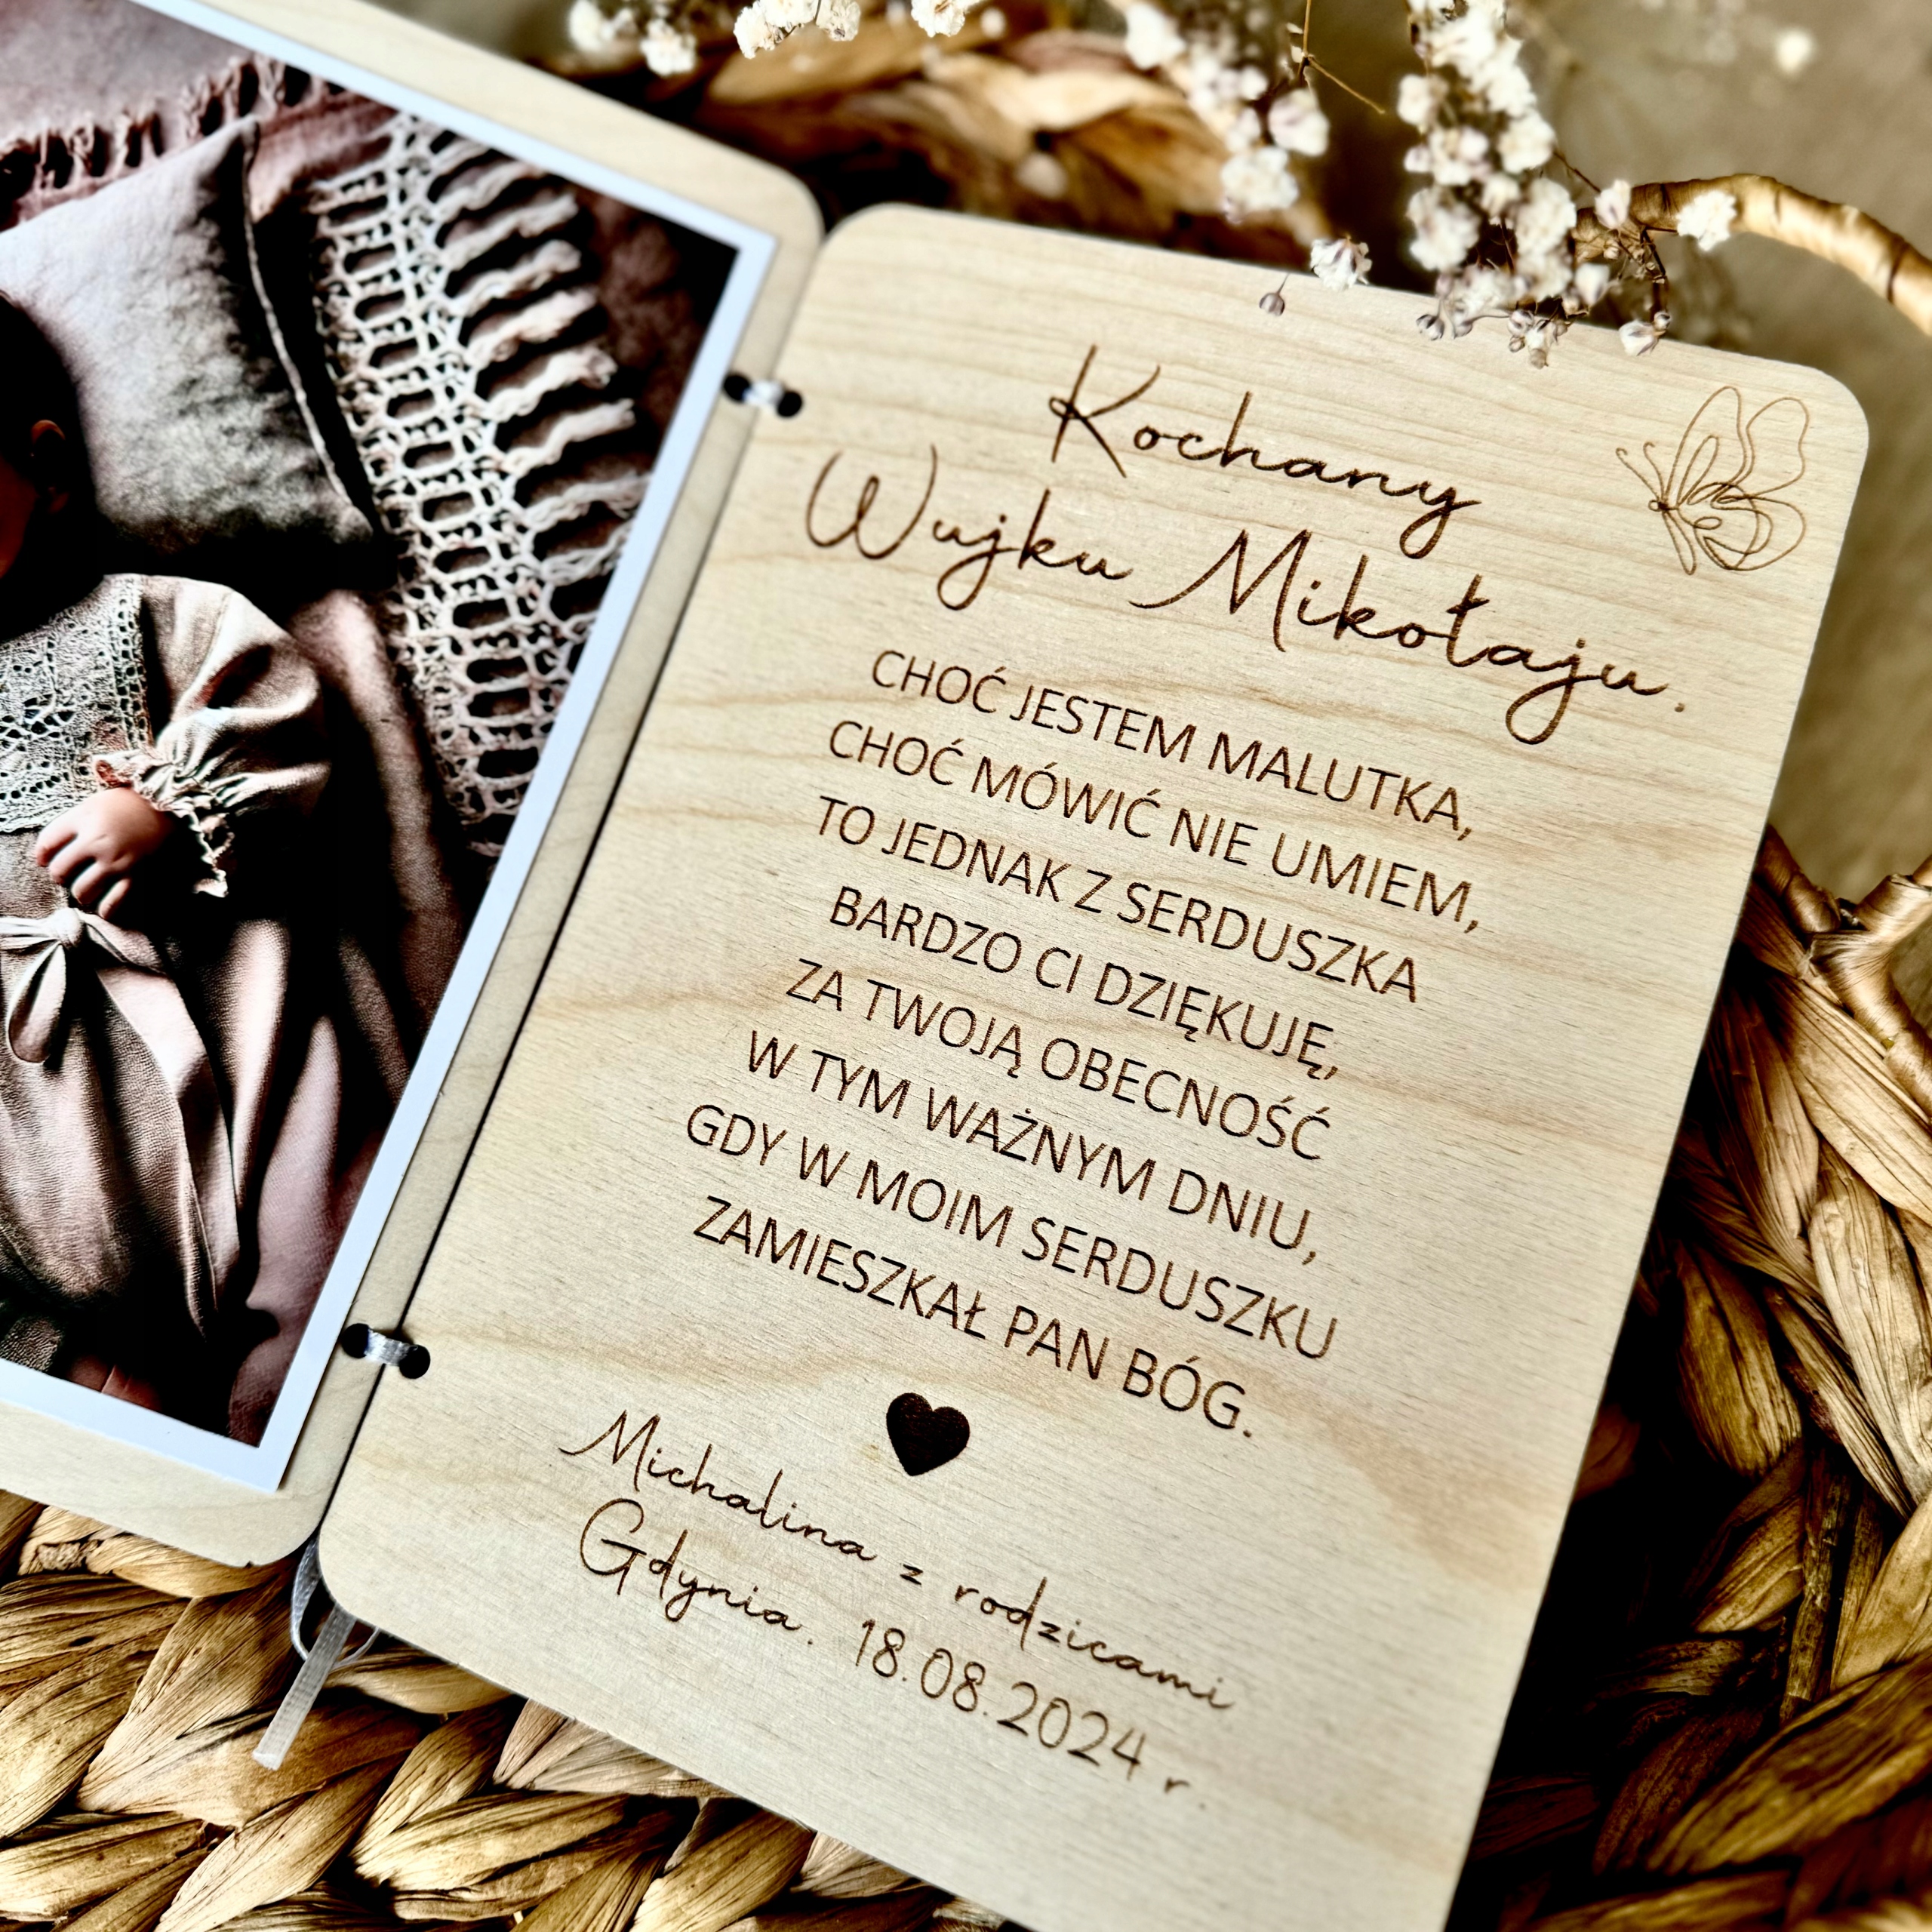 Kochany
Wujku Mikołaju.
CHOĆ JESTEM MALUTKA,
CHOĆ MÓWIĆ NIE UMIEM,
TO JEDNAK Z SERDUSZKA
BARDZO CI DZIĘKUJĘ,
ZA TWOJĄ OBECNOŚĆ
W TYM WAŻNYM DNIU,
GDY W MOIM SERDUSZKU
ZAMIESZKAŁ PAN BÓG.
Michalina z rodzicami
Gdynia. 18.08.2024 r.